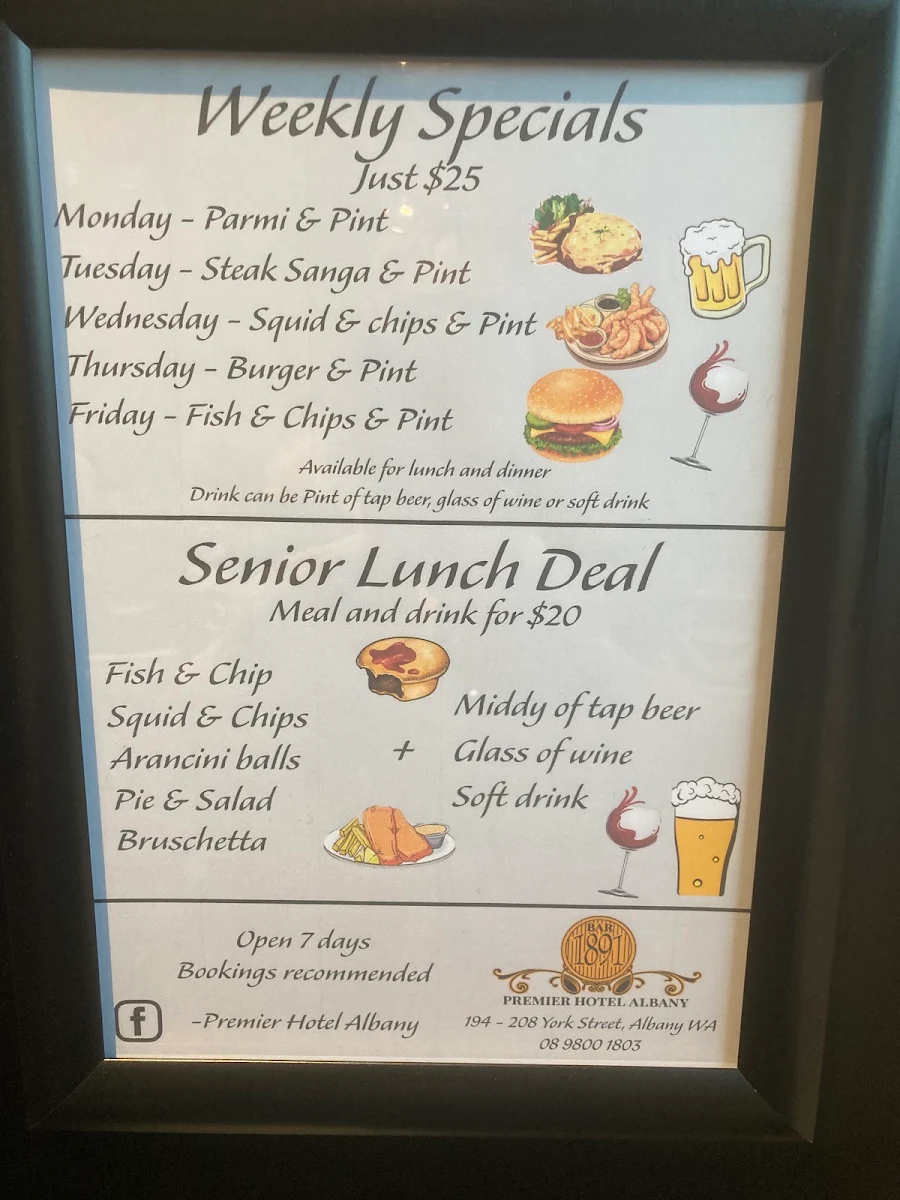 Weekly Specials
Just $25
Monday - Parmi & Pint
Tuesday - Steak Sanga & Pint
Wednesday - Squid & chips & Pint
Thursday - Burger & Pint
Friday - Fish & Chips & Pint
Available for lunch and dinner
Drink can be Pint of tap beer, glass of wine or soft drink
Senior Lunch Deal
Meal and drink for $20
Fish & Chip
Squid & Chips
Arancini balls
Pie & Salad
Bruschetta
+
Middy of tap beer
Glass of wine
Soft drink
Open 7 days
Bookings recommended
f
-Premier Hotel Albany
BAR
1891
PREMIER HOTEL ALBANY
194 - 208 York Street, Albany WA
08 9800 1803